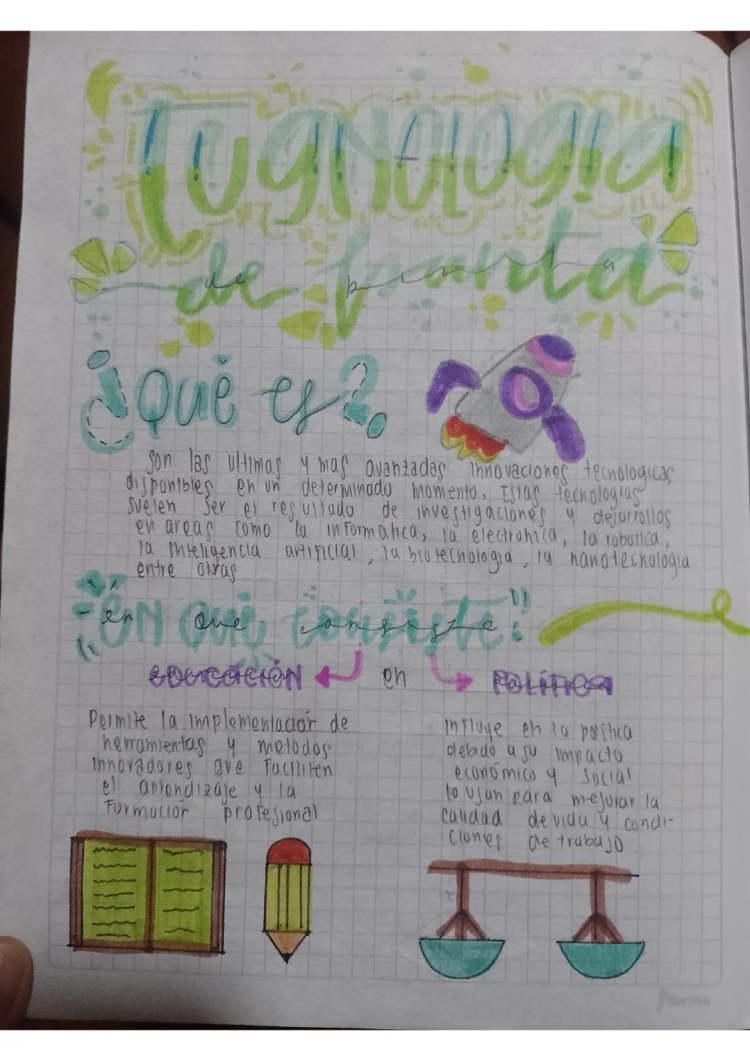 Tecgnologia
de punta
¿Qué es?
Son las ultimas y mas avanzadas innovaciones tecnologicas
disponibles en un determinado momento. Estas tecnologias
suelen ser el resultado de investigaciones y desarrollos
en areas como la informatica, la electronica, la robotica,
la inteligencia artificial, la biotecnologia, la nanotecnologia
entre otras
en que consiste
EDUCACIÓN en POLÍTICA
Permite la implementación de
herramientas y metodos
innovadores que faciliten
el aprendizaje y la
formación profesional
Influye en la política
debido a su impacto
económico y social
lo usan para mejorar la
calidad de vida y condi-
ciones de trabajo
Norma